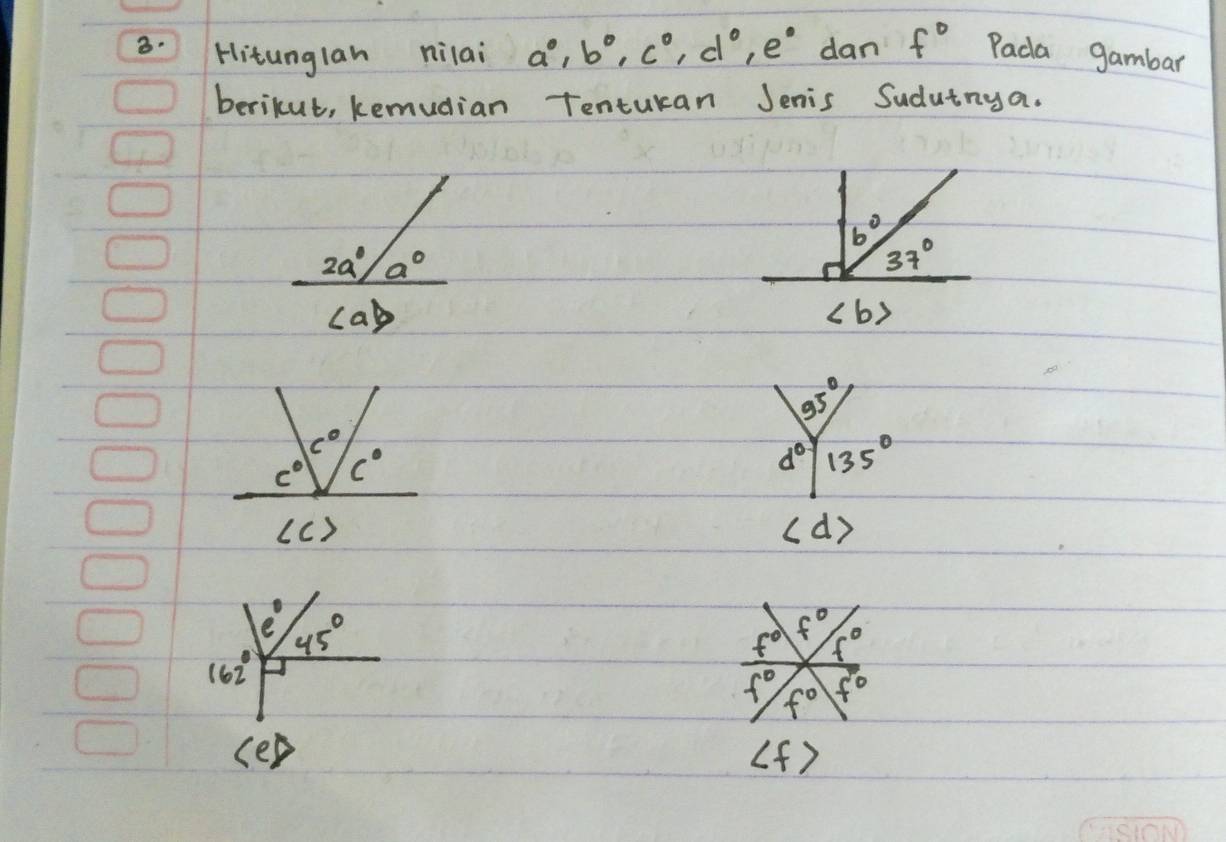 3. Hitunglah nilai a°, b°, c°, d°, e° dan f° Pada gambar
berikut, kemudian Tentukan Jenis Sudutnya.
2a° a°
<a>
b° 37°
<b>
c° c° c°
<c>
95°
d° 135°
<d>
e° 45°
162°
<e>
f° f° f°
f° f° f°
<f>
VISION